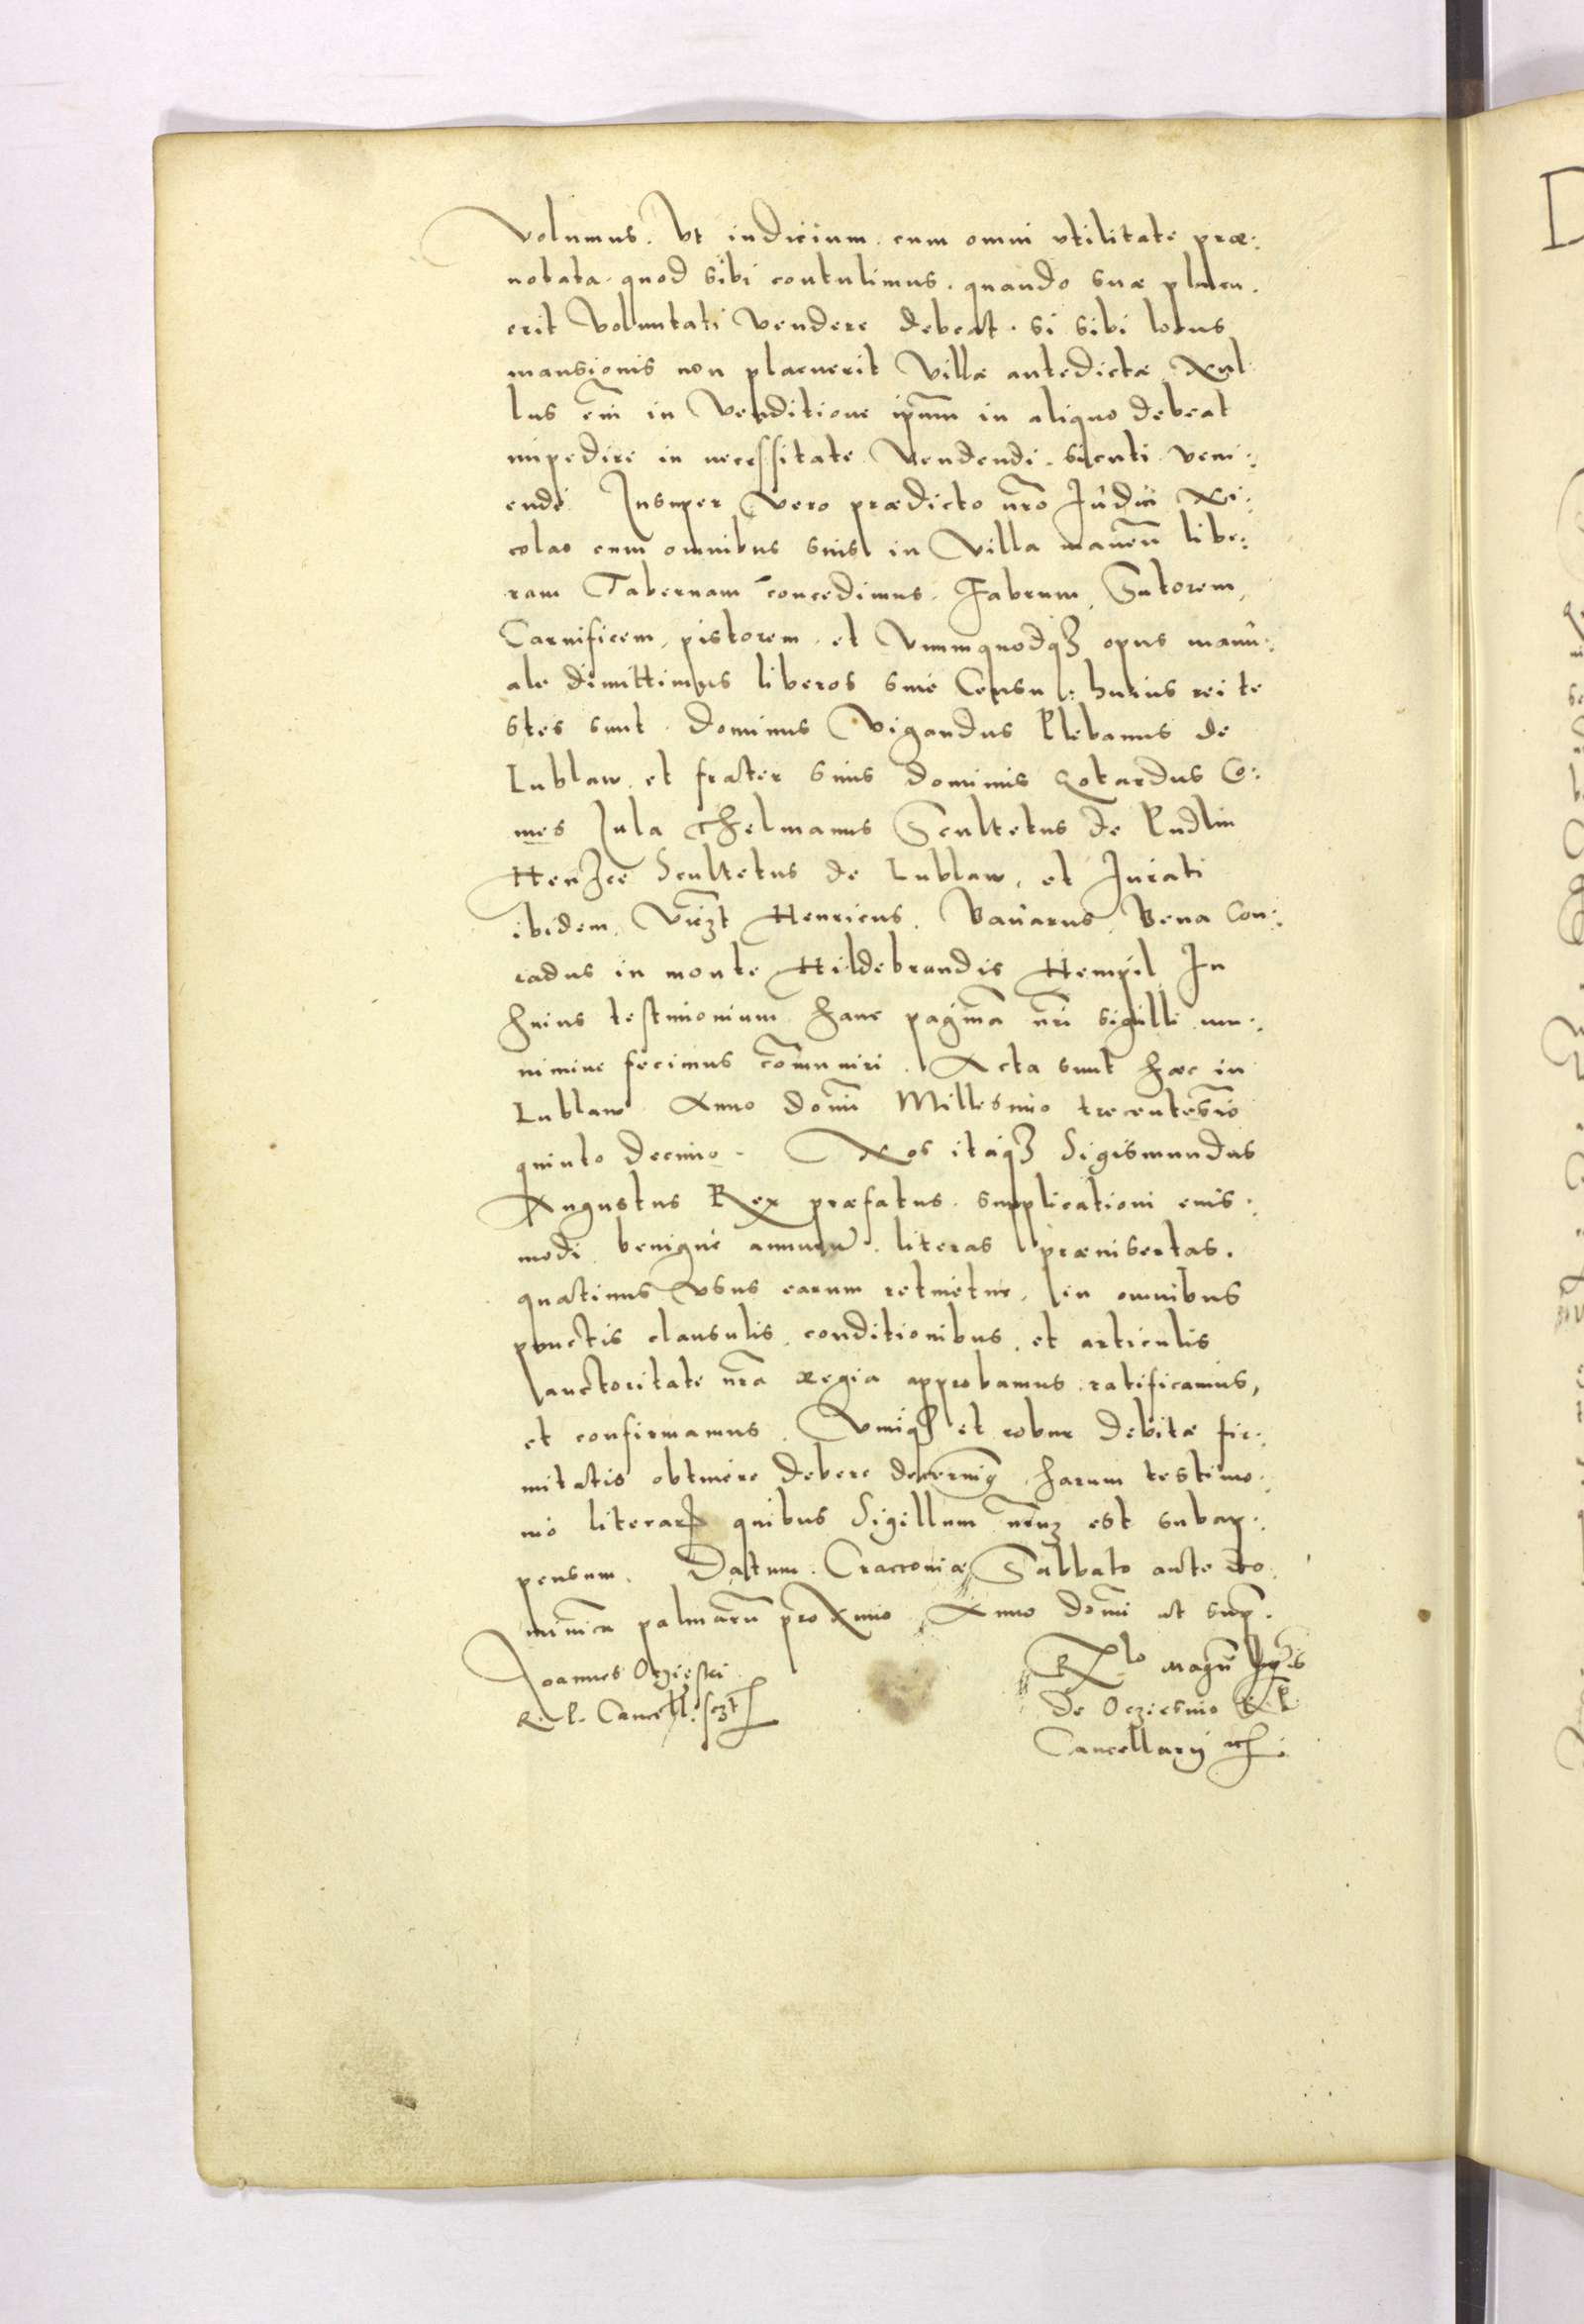 Volumus. Vt iudicium cum omni vtilitate præ:
notata quod sibi contulimus. quando suæ placu.
erit Voluntati Vendere debeat. si sibi locus
mansionis non placuerit Villæ antedictæ Nul
lus em̃ in Venditione ipsum in aliquo debeat
impedire in necessitate Vendendi. sicuti veni:
endi Insuper Vero prædicto nr̃o Iudici Ni:
colao cum omnibus suis in Villa manen̄ libe:
ram Tabernam concedimus. Fabrum, Sutorem,
Carnificem, pistorem. et Vnumquodq3 opus manu:
ale dimittimus liberos sine Censu: huius rei te
stes sunt. Dominus Vigandus Plebanus de
Lublaw. et frater suus dominus Rotardus Co:
mes Iula Thelmanus Scultetus de Pudlin
Henzce Scultetus de Lublaw, et Iurati
ibidem, Vicz̃t Henricus. Bauarus, Bena Con:
radus in monte Hildebrandis Hempil In
huius testimonium hanc pagina̅ nr̃i sigilli mu:
nimine fecimus com̃uniri. Acta sunt hæc in
Lublaw Anno domi̅ Millesimo trecentesi̅o
quinto decimo. Nos itaq3 Sigismundus
Augustus Rex præfatus. supplicationi eius:
modi benigne annuen̅. literas præinsertas.
quatinus Vsus earum retinetur, in omnibus
punctis clausulis. conditionibus. et articulis
auctoritate nr̃a regia approbamus ratificamus,
et confirmamus. Vimq3 et robur debitæ fir:
mitatis obtinere debere decernim9 harum testimo:
nio literar̅ quibus Sigillum nr̃um est subap:
pensum. Datum. Cracouiæ Sabbato ante do
minica̅ palmaru̅ proximo Anno domi̅ ut sup̱.
Joannes Oczieski
R. P. Cancell. sszt
R̃lo magn̄
de Ocziesino R. P.
Cancellarij